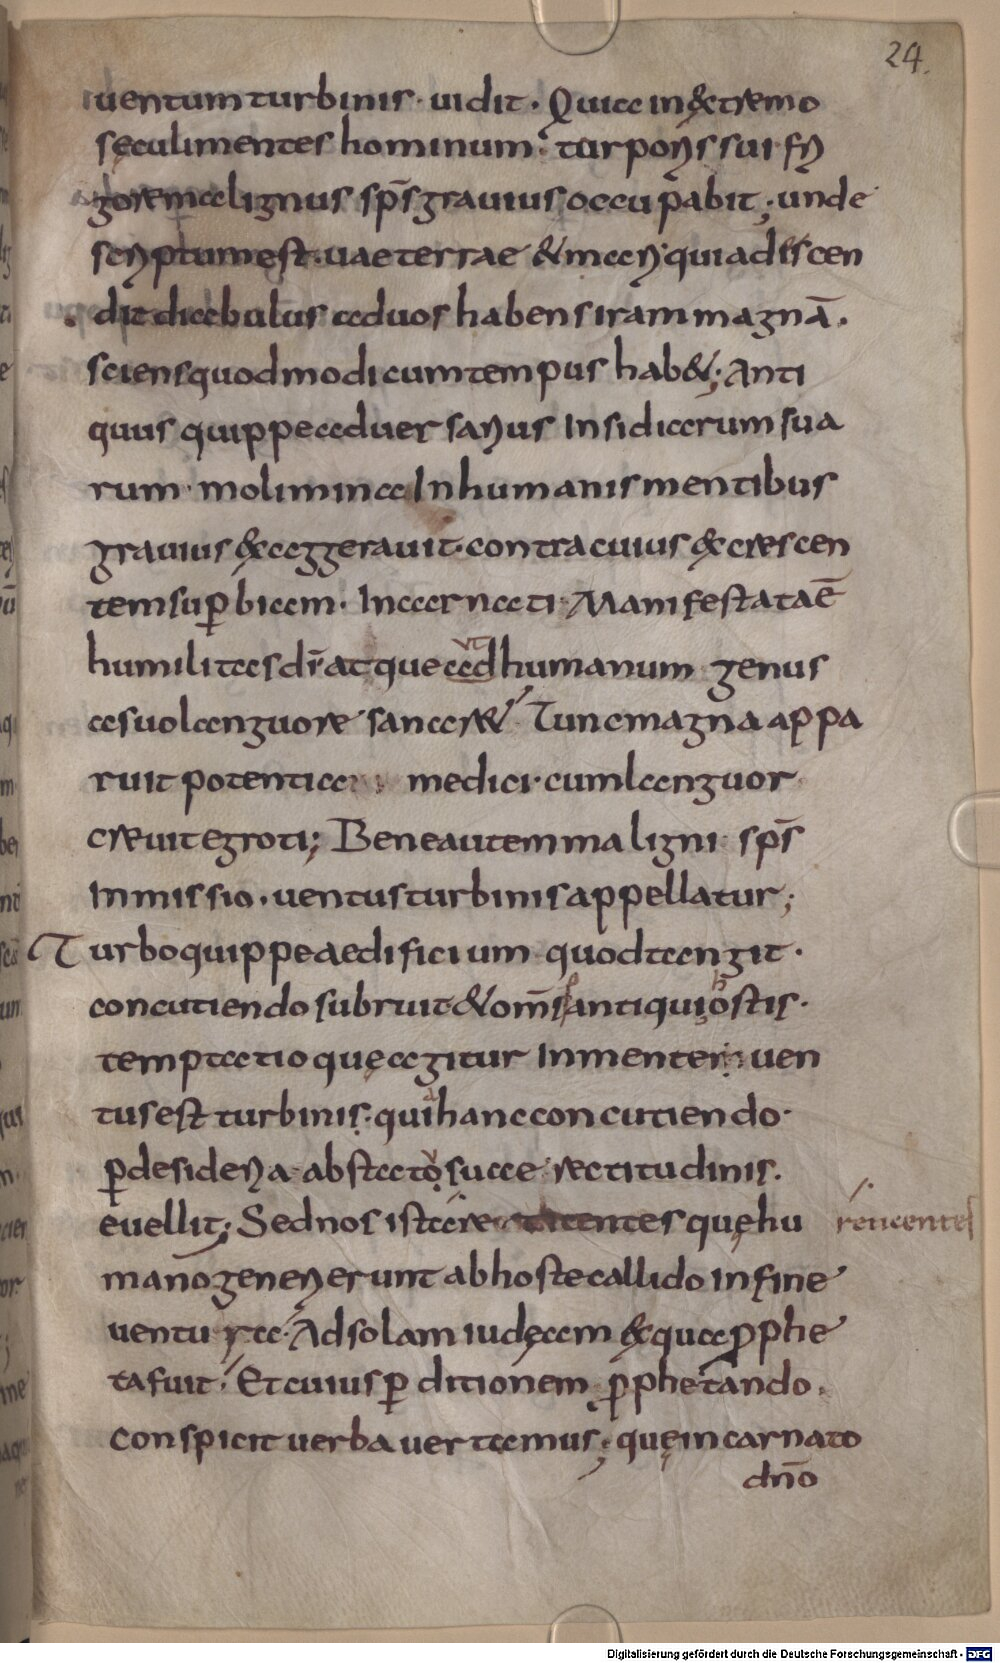 24.
uentum turbinis· uidit· Quia in extremo
sęculi mentes hominum· torporis sui fri
gore malignus sp̄s grauius occupabit; unde
scriptum est· uae terrae & mari· quia discen
dit diabulus ad uos habens iram magnā·
sciens quod modicum tempus hab&; Anti
quus quippe aduersarius Insidiarum sua
rum· molimina In humanis mentibus
grauius exaggerauit· contra cuius & crescen
tem sup̱biam· Incarnati· Manifestata ē
humilitas dī atque ad ut humanum genus
a suo languore sanar&· Tunc magna appa
ruit potentia medici· cum languor
creuit egroti; Bene autem maligni sp̄s
Inmissio· uentus turbinis appellatur;
Turbo quippe aedificium quod tangit·
concutiendo subruit· & om̄s antiqui hostis·
temptatio quę agitur In mentem uen
tus est turbinis· qui hanc concutiendo·
p̱ desideria· ab statu suae rectitudinis·
euellit; Sed nos ista re ticentes quę hu
reticentes
mano generi erunt ab hoste callido in fine
uentura· Ad solam iudęam ex qua p̱phe
ta fuit· Et cuius p̱ditionem p̱phetando·
conspicit uerba uertamus; quę incarnato
dn̄o
Digitalisierung gefördert durch die Deutsche Forschungsgemeinschaft - DFG